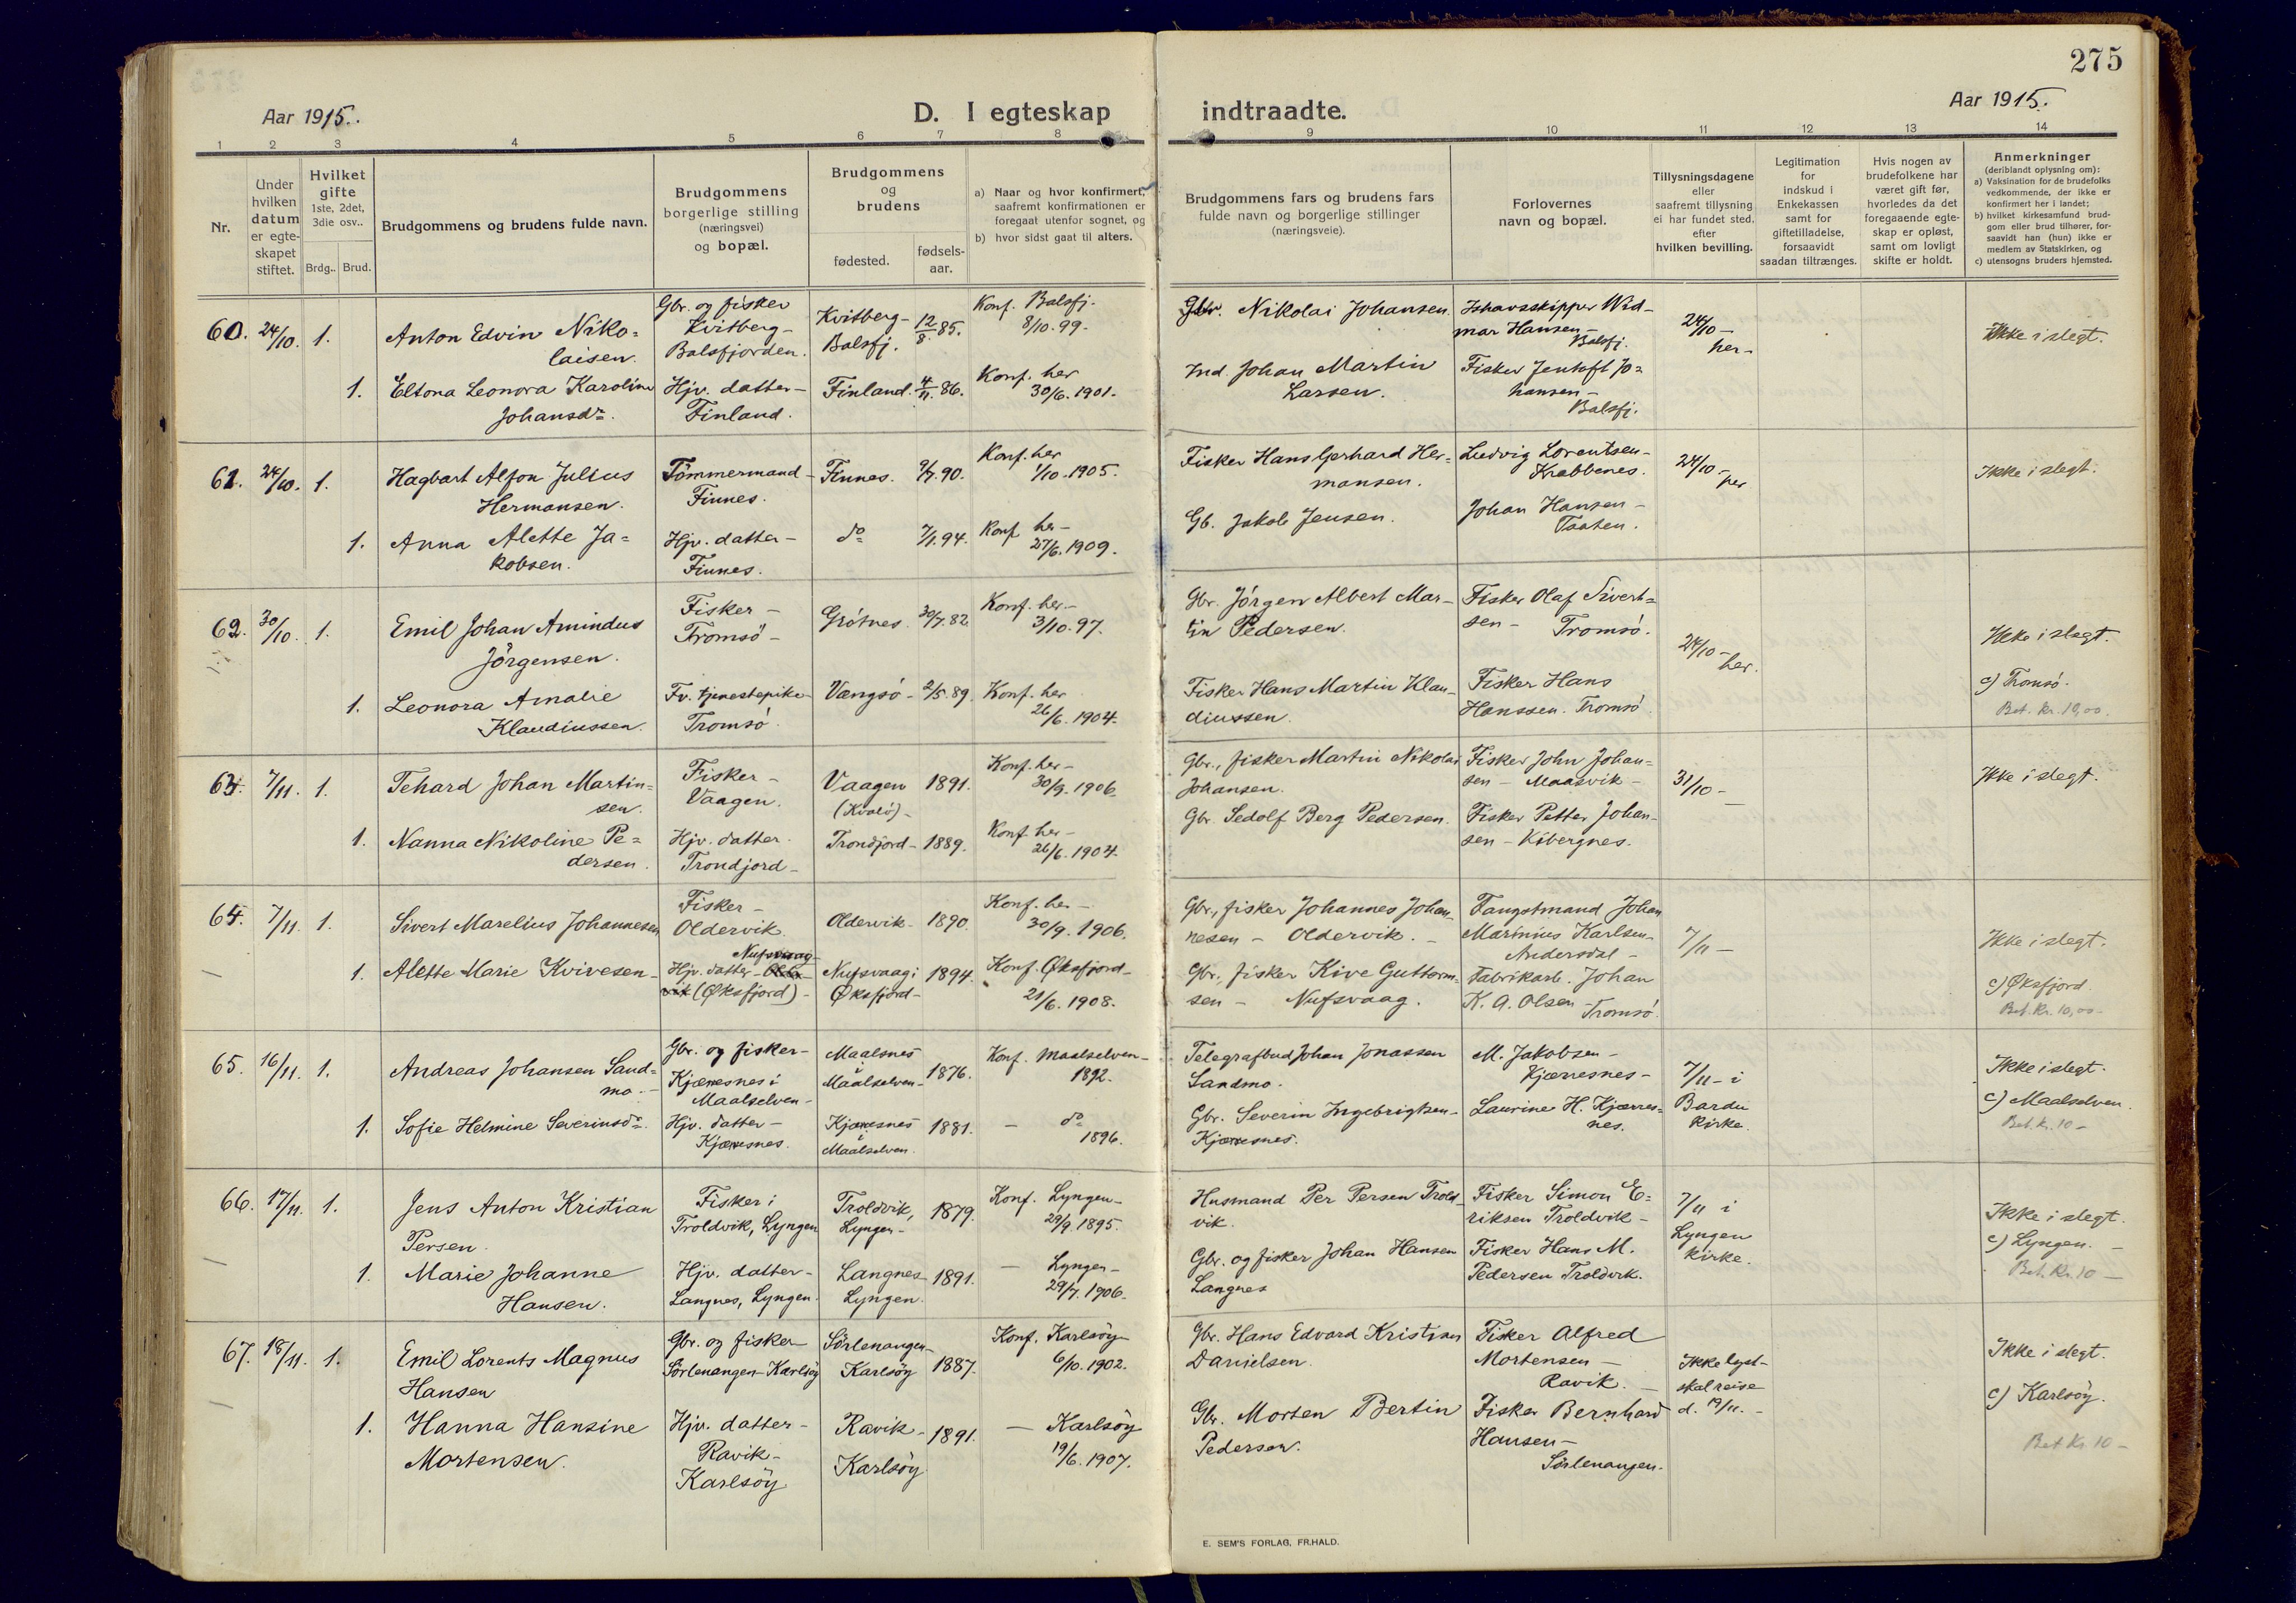 275
Aar 1915.
D. I egteskap indtraadte.
Aar 1915.
1 2 3 4 5 6 7 8 9 10 11 12 13 14
Nr.
Under
hvilken
datum
er egte-
skapet
stiftet.
Hvilket
gifte
1ste, 2det,
3die osv..
Brdg.. Brud.
Brudgommens og brudens fulde navn.
Brudgommens
borgerlige stilling
(næringsvei)
og bopæl.
Brudgommens
og
brudens
fødested.
fødsels-
aar.
a) Naar og hvor konfirmert,
saafremt konfirmationen er
foregaat utenfor sognet, og
b) hvor sidst gaat til alters.
Brudgommens fars og brudens fars
fulde navn og borgerlige stillinger
(næringsveie).
Forlovernes
navn og bopæl.
Tillysningsdagene
eller
saafremt tillysning
ei har fundet sted,
efter
hvilken bevilling.
Legitimation
for
indskud i
Enkekassen
samt for
giftetilladelse,
forsaavidt
saadan tiltrænges.
Hvis nogen av
brudefolkene har
været gift før,
hvorledes da det
foregaaende egte-
skap er opløst,
samt om lovligt
skifte er holdt.
Anmerkninger
(deriblandt oplysning om):
a) Vaksination for de brudefolks
vedkommende, der ikke er
konfirmert her i landet;
b) hvilket kirkesamfund brud-
gom eller brud tilhører, for-
saavidt han (hun) ikke er
medlem av Statskirken, og
c) utensogns bruders hjemsted.
60. 24/10. 1.
Anton Edvin Niko=
laisen.
Gbr. og fisker
Kvitberg-
Balsfjorden.
Kvitberg-
Balsfj.
12/8. 85.
Konf. Balsfj.
8/10. 99.
Gbr. Nikolai Johansen.
Ishavsskipper Wid-
mar Hansen-
Balsfj.
24/10-
her-
Ikke i slegt.
1.
Eltona Leonora Karoline
Johansdr.
Hjv. datter-
Finland.
Finland.
4/11. 86.
Konf. her
30/6. 1901.
Ind. Johan Martin
Larsen.
Fisker Jentoft Jo=
hansen-
Balsfj.
61. 24/10. 1.
Hagbart Alfon Julius
Hermansen.
Tömmermand-
Finnes.
Finnes.
9/7. 90.
Konf. her
1/10. 1905.
Fisker Hans Gerhard Her=
mansen.
Ludvig Lorentsen-
Krabbenes.
24/10-
her
Ikke i slegt.
1.
Anna Alette Ja=
kobsen.
Hjv. datter-
Finnes.
do
7/1. 94.
Konf her-
27/6. 1909.
Gb. Jakob Jensen.
Johan Hansen-
Taaten.
62. 30/10. 1.
Emil Johan Amindus
Jörgensen.
Fisker-
Tromsö-
Grötnes.
30/7. 82.
Konf. her-
3/10. 97.
Gbr. Jörgen Albert Mar-
tin Pedersen.
Fisker Olaf Sivert=
sen- Tromsö.
24/10-
her.
Ikke i slegt.
1.
Leonora Amalie
Klaudiussen.
Fv. tjenestepike-
Tromsö
Vængsö-
2/5. 89.
Konf. her
26/6. 1904.
Fisker Hans Martin Klau-
diussen.
Fisker Hans
Hanssen. Tromsö
c) Tromsö.
Bet. Kr. 10,00.
63. 7/11. 1.
Tehard Johan Martin=
sen.
Fisker-
Vaagen.
Vaagen
(Kvalö)-
1891.
Konf. her-
30/9. 1906.
Gbr., fisker Martin Nikolai
Johansen.
Fisker John Johan=
sen- Maasvik-
31/10-
Ikke i slegt.
1.
Nanna Nikoline Pe=
dersen.
Hjv. datter.
Trondjord-
Trondjord-
1889.
Konf. her-
26/6. 1904.
Gbr. Sedolf Berg Pedersen.
Fisker Petter Johan-
sen- Kibergnes.
64. 7/11. 1.
Sivert Marelius Johannesen
Fisker-
Oldervik.
Oldervik-
1890.
Konf. her-
30/9. 1906.
Gbr., fisker Johannes Johan-
nesen- Oldervik.-
Fangstmand Johan
Marinius Karlsen-
Andersdal-
7/11-
Ikke i slegt.
1.
Alette Marie Kvivesen-
Nufsvaag-
Hjv. datter- Older
vik (Øksfjord)-
Nufsvaag i
Øksfjord-
1894.
Konf. Øksfjord-
21/6. 1908.
Gbr., fisker Kive Guttorm=
sen- Nufsvaag.
Fabrikarb. Johan
K. A. Olsen- Tromsö.
c) Øksfjord.
Bet. Kr. 10,00-
65. 16/11. 1.
Andreas Johansen Sand=
mo.-
Gbr. og fisker-
Kjærresnes i
Maalselven-
Maalsnes
i
Maalselven-
1876.
Konf. Maalselven-
1892.
Telegrafbud Johan Jonassen
Sandmo.
M. Jakobsen-
Kjærresnes-
7/11-i
Bardu
Kirke.
Ikke i slegt.
1.
Sofie Helmine Severinsdr.
Hjv. datter-
Kjærresnes.
Kjærresnes
i
Maalselven.
1881.
- do
1896.
Gbr. Severin Ingebrigtsen-
Kjærresnes.
Laurine H. Kjærres=
nes.
c) Maalselven.
Bet. Kr. 10-
66. 17/11. 1.
Jens Anton Kristian
Persen.
Fisker i
Troldvik, Lyngen
Troldvik,
Lyngen-
1879.
Konf. Lyngen-
29/9. 1895.
Husmand Per Persen Trold-
vik.
Fisker Simon E=
riksen Troldvik-
7/11 i
Lyngen
kirke.
Ikke i slegt.
1.
Marie Johanne
Hansen.
Hjv. datter-
Langnes, Lyngen.
Langnes
Lyngen.
1891.
- Lyngen-
29/7. 1906.
Gbr. og fisker Johan Hansen
Langnes
Fisker Hans M.
Pedersen Troldvik.
c) Lyngen.-
Bet. Kr. 10-
67. 18/11. 1.
Emil Lorents Magnus
Hansen
Gbr. og fisker
Sörlenangen-Karlsöy
Sörlenangen-
Karlsöy
1887.
Konf. Karlsöy
6/10. 1902.
Gbr. Hans Edvard Kristian
Danielsen.
Fisker Alfred
Mortensen-
Ravik.-
Ikke lyst-
skal reise
d. 19/11.-
Ikke i slegt.
1.
Hanna Hansine
Mortensen.
Hjv. datter-
Ravik-
Karlsöy
Ravik-
Karlsöy
1891.
- Karlsöy
19/6. 1907.
Gbr. Morten Bertin
Pedersen.
Fisker Bernhard
Hansen-
Sörlenangen.
c) Karlsöy.
Bet Kr. 10-
E. SEM'S FORLAG, FR.HALD.